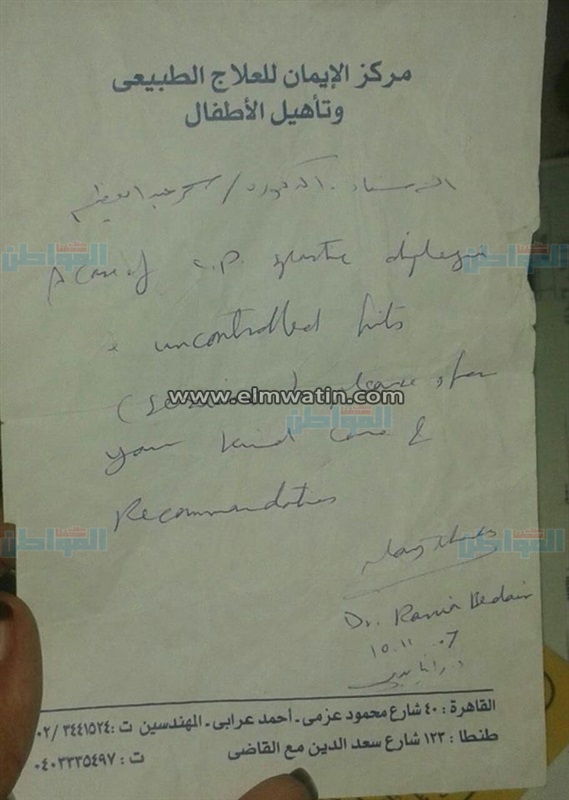 مركز الإيمان للعلاج الطبيعى
وتأهيل الأطفال
الاستاذ الدكتور /
A case of c.p. spastic diplegia
c uncontrolled fits
please for
www.elmwatin.com
your kind care &
Recommendations
المواطن
Many thanks
Dr. Rania Bedair
10.11.07
القاهرة : ٤٠ شارع محمود عزمى - أحمد عرابى - المهندسين ت : ٣٤٤١٥٢٤ /٠٢
طنطا : ١٢٣ شارع سعد الدين مع القاضى ت : ٠٤٠٣٣٣٥٤٩٧